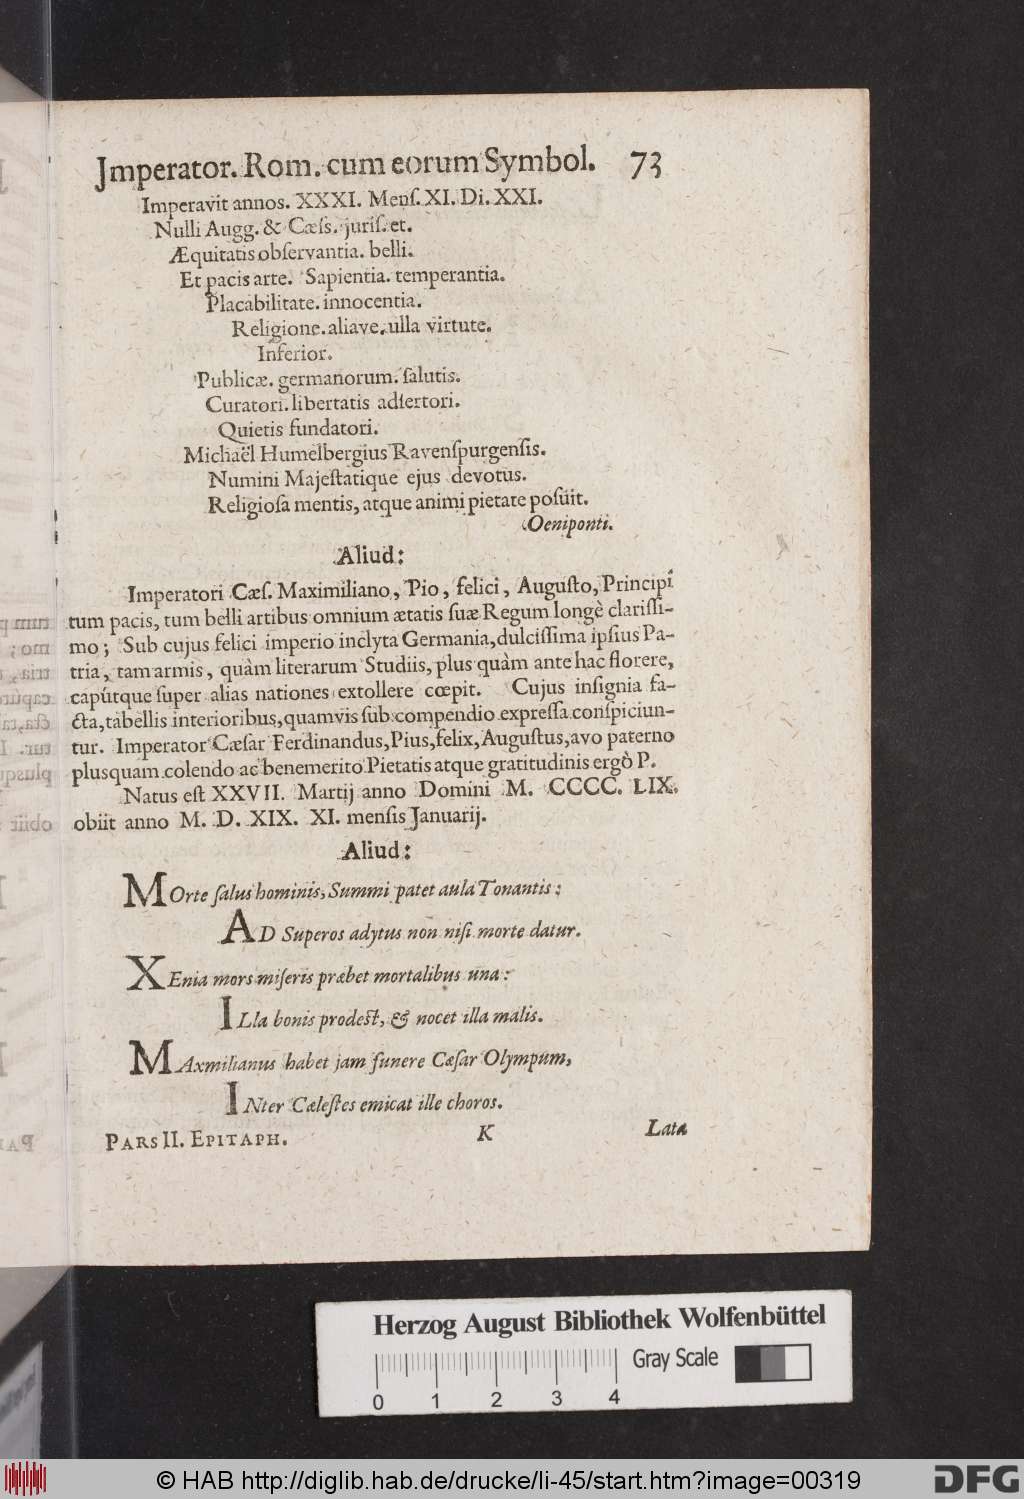 Jmperator. Rom. cum eorum Symbol. 73
Imperavit annos. XXXI. Menſ. XI. Di. XXI.
Nulli Augg. & Cæſs. juriſ. et.
Æquitatis obſervantia. belli.
Et pacis arte. Sapientia. temperantia.
Placabilitate. innocentia.
Religione. aliave. ulla virtute.
Inferior.
Publicæ. germanorum. ſalutis.
Curatori. libertatis adſertori.
Quietis fundatori.
Michaël Humelbergius Ravenſpurgenſis.
Numini Majeſtatique ejus devotus.
Religioſa mentis, atque animi pietate poſuit.
Oeniponti.
Aliud:
Imperatori Cæſ. Maximiliano, Pio, felici, Auguſto, Principi
tum pacis, tum belli artibus omnium ætatis ſuæ Regum longè clariſſi-
mo; Sub cujus felici imperio inclyta Germania, dulciſſima ipſius Pa-
tria, tam armis, quàm literarum Studiis, plus quàm ante hac florere,
capútque ſuper alias nationes extollere cœpit. Cujus inſignia fa-
cta, tabellis interioribus, quamvis ſub compendio expreſſa conſpiciun-
tur. Imperator Cæſar Ferdinandus, Pius, felix, Auguſtus, avo paterno
plusquam colendo ac benemerito Pietatis atque gratitudinis ergò P.
Natus eſt XXVII. Martij anno Domini M. CCCC. LIX.
obiit anno M. D. XIX. XI. menſis Januarij.
Aliud:
MOrte ſalus hominis, Summi patet aula Tonantis:
AD Superos adytus non niſi morte datur.
XEnia mors miſeris præbet mortalibus una:
ILla bonis prodeſt, & nocet illa malis.
MAxmilianus habet jam funere Cæſar Olympum,
INter Cæleſtes emicat ille choros.
PARS II. EPITAPH. K Lata
Herzog August Bibliothek Wolfenbüttel
Gray Scale
0 1 2 3 4
© HAB http://diglib.hab.de/drucke/li-45/start.htm?image=00319
DFG